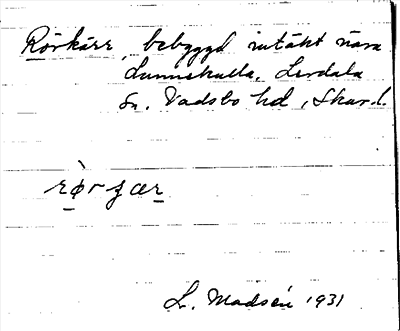 Rörkärr, bebyggd intäkt nära
Lunnekulla, Lerdala
sn. Vadsbo hd, Skar.l.
rø̀rʒær
L. Madsén 1931